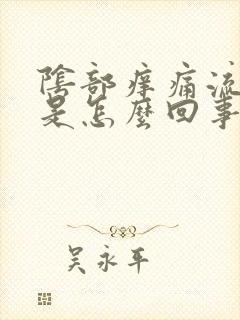 陰部痒痛流
是怎麼回事
吴永平